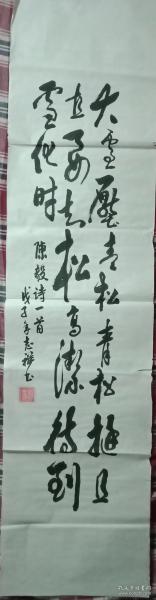 大雪压青松青松挺且
直要知松高洁待到
雪化时
陈毅诗一首
戊子年志祥书